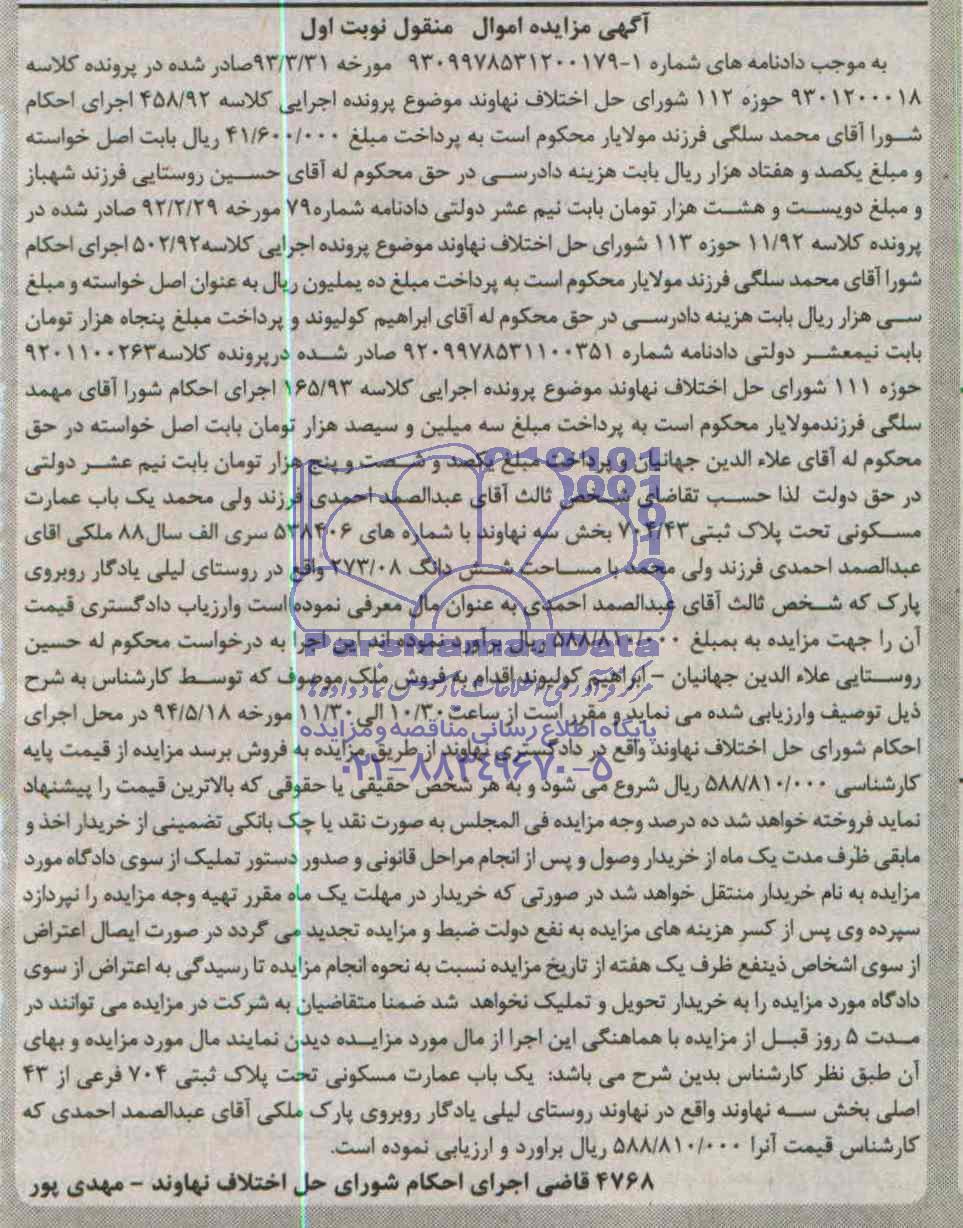 آگهی مزایده اموال منقول نوبت اول
به موجب دادنامه های شماره ۱-۹۳۰۹۹۷۸۵۳۱۲۰۰۱۷۹ مورخه ۹۳/۳/۳۱صادر شده در پرونده کلاسه
۹۳۰۱۲۰۰۰۱۸ حوزه ۱۱۲ شورای حل اختلاف نهاوند موضوع پرونده اجرایی کلاسه ۴۵۸/۹۲ اجرای احکام
شورا آقای محمد سلگی فرزند مولایار محکوم است به پرداخت مبلغ ۴۱/۶۰۰/۰۰۰ ریال بابت اصل خواسته
و مبلغ یکصد و هفتاد هزار ریال بابت هزینه دادرسی در حق محکوم له آقای حسین روستایی فرزند شهباز
و مبلغ دویست و هشت هزار تومان بابت نیم عشر دولتی دادنامه شماره۷۹ مورخه ۹۲/۲/۲۹ صادر شده در
پرونده کلاسه ۱۱/۹۲ حوزه ۱۱۳ شورای حل اختلاف نهاوند موضوع پرونده اجرایی کلاسه۵۰۲/۹۲ اجرای احکام
شورا آقای محمد سلگی فرزند مولایار محکوم است به پرداخت مبلغ ده یملیون ریال به عنوان اصل خواسته و مبلغ
سی هزار ریال بابت هزینه دادرسی در حق محکوم له آقای ابراهیم کولیوند و پرداخت مبلغ پنجاه هزار تومان
بابت نیمعشر دولتی دادنامه شماره ۹۲۰۹۹۷۸۵۳۱۱۰۰۳۵۱ صادر شده درپرونده کلاسه۹۲۰۱۱۰۰۲۶۳
حوزه ۱۱۱ شورای حل اختلاف نهاوند موضوع پرونده اجرایی کلاسه ۱۶۵/۹۳ اجرای احکام شورا آقای مهمد
سلگی فرزندمولایار محکوم است به پرداخت مبلغ سه میلین و سیصد هزار تومان بابت اصل خواسته در حق
محکوم له آقای علاء الدین جهانیان و پرداخت مبلغ یکصد و شصت و پنج هزار تومان بابت نیم عشر دولتی
در حق دولت لذا حسب تقاضای شخص ثالث آقای عبدالصمد احمدی فرزند ولی محمد یک باب عمارت
مسکونی تحت پلاک ثبتی۷۰۴/۴۳ بخش سه نهاوند با شماره های ۵۳۸۴۰۶ سری الف سال۸۸ ملکی اقای
عبدالصمد احمدی فرزند ولی محمد با مساحت شش دانگ ۲۷۳/۰۸ واقع در روستای لیلی یادگار روبروی
پارک که شخص ثالث آقای عبدالصمد احمدی به عنوان مال معرفی نموده است وارزیاب دادگستری قیمت
آن را جهت مزایده به بمبلغ ۵۸۸/۸۱۰/۰۰۰ ریال برآورد نموده اند این اجرا به درخواست محکوم له حسین
روستایی علاء الدین جهانیان - ابراهیم کولیوند اقدام به فروش ملک موصوف که توسط کارشناس به شرح
ذیل توصیف وارزیابی شده می نماید و مقرر است از ساعت ۱۰/۳۰ الی ۱۱/۳۰ مورخه ۹۴/۵/۱۸ در محل اجرای
احکام شورای حل اختلاف نهاوند واقع در دادگستری نهاوند از طریق مزایده به فروش برسد مزایده از قیمت پایه
کارشناسی ۵۸۸/۸۱۰/۰۰۰ ریال شروع می شود و به هر شخص حقیقی یا حقوقی که بالاترین قیمت را پیشنهاد
نماید فروخته خواهد شد ده درصد وجه مزایده فی المجلس به صورت نقد یا چک بانکی تضمینی از خریدار اخذ و
مابقی ظرف مدت یک ماه از خریدار وصول و پس از انجام مراحل قانونی و صدور دستور تملیک از سوی دادگاه مورد
مزایده به نام خریدار منتقل خواهد شد در صورتی که خریدار در مهلت یک ماه مقرر تهیه وجه مزایده را نپردازد
سپرده وی پس از کسر هزینه های مزایده به نفع دولت ضبط و مزایده تجدید می گردد در صورت ایصال اعتراض
از سوی اشخاص ذینفع ظرف یک هفته از تاریخ مزایده نسبت به نحوه انجام مزایده تا رسیدگی به اعتراض از سوی
دادگاه مورد مزایده را به خریدار تحویل و تملیک نخواهد شد ضمنا متقاضیان به شرکت در مزایده می توانند در
مدت ۵ روز قبل از مزایده با هماهنگی این اجرا از مال مورد مزایده دیدن نمایند مال مورد مزایده و بهای
آن طبق نظر کارشناس بدین شرح می باشد: یک باب عمارت مسکونی تحت پلاک ثبتی ۷۰۴ فرعی از ۴۳
اصلی بخش سه نهاوند واقع در نهاوند روستای لیلی یادگار روبروی پارک ملکی آقای عبدالصمد احمدی که
کارشناس قیمت آنرا ۵۸۸/۸۱۰/۰۰۰ ریال براورد و ارزیابی نموده است.
۴۷۶۸ قاضی اجرای احکام شورای حل اختلاف نهاوند - مهدی پور
ParsNamadData
پایگاه اطلاع رسانی مناقصه و مزایده
۰۲۱-۸۸۳۴۹۶۷۰-۵